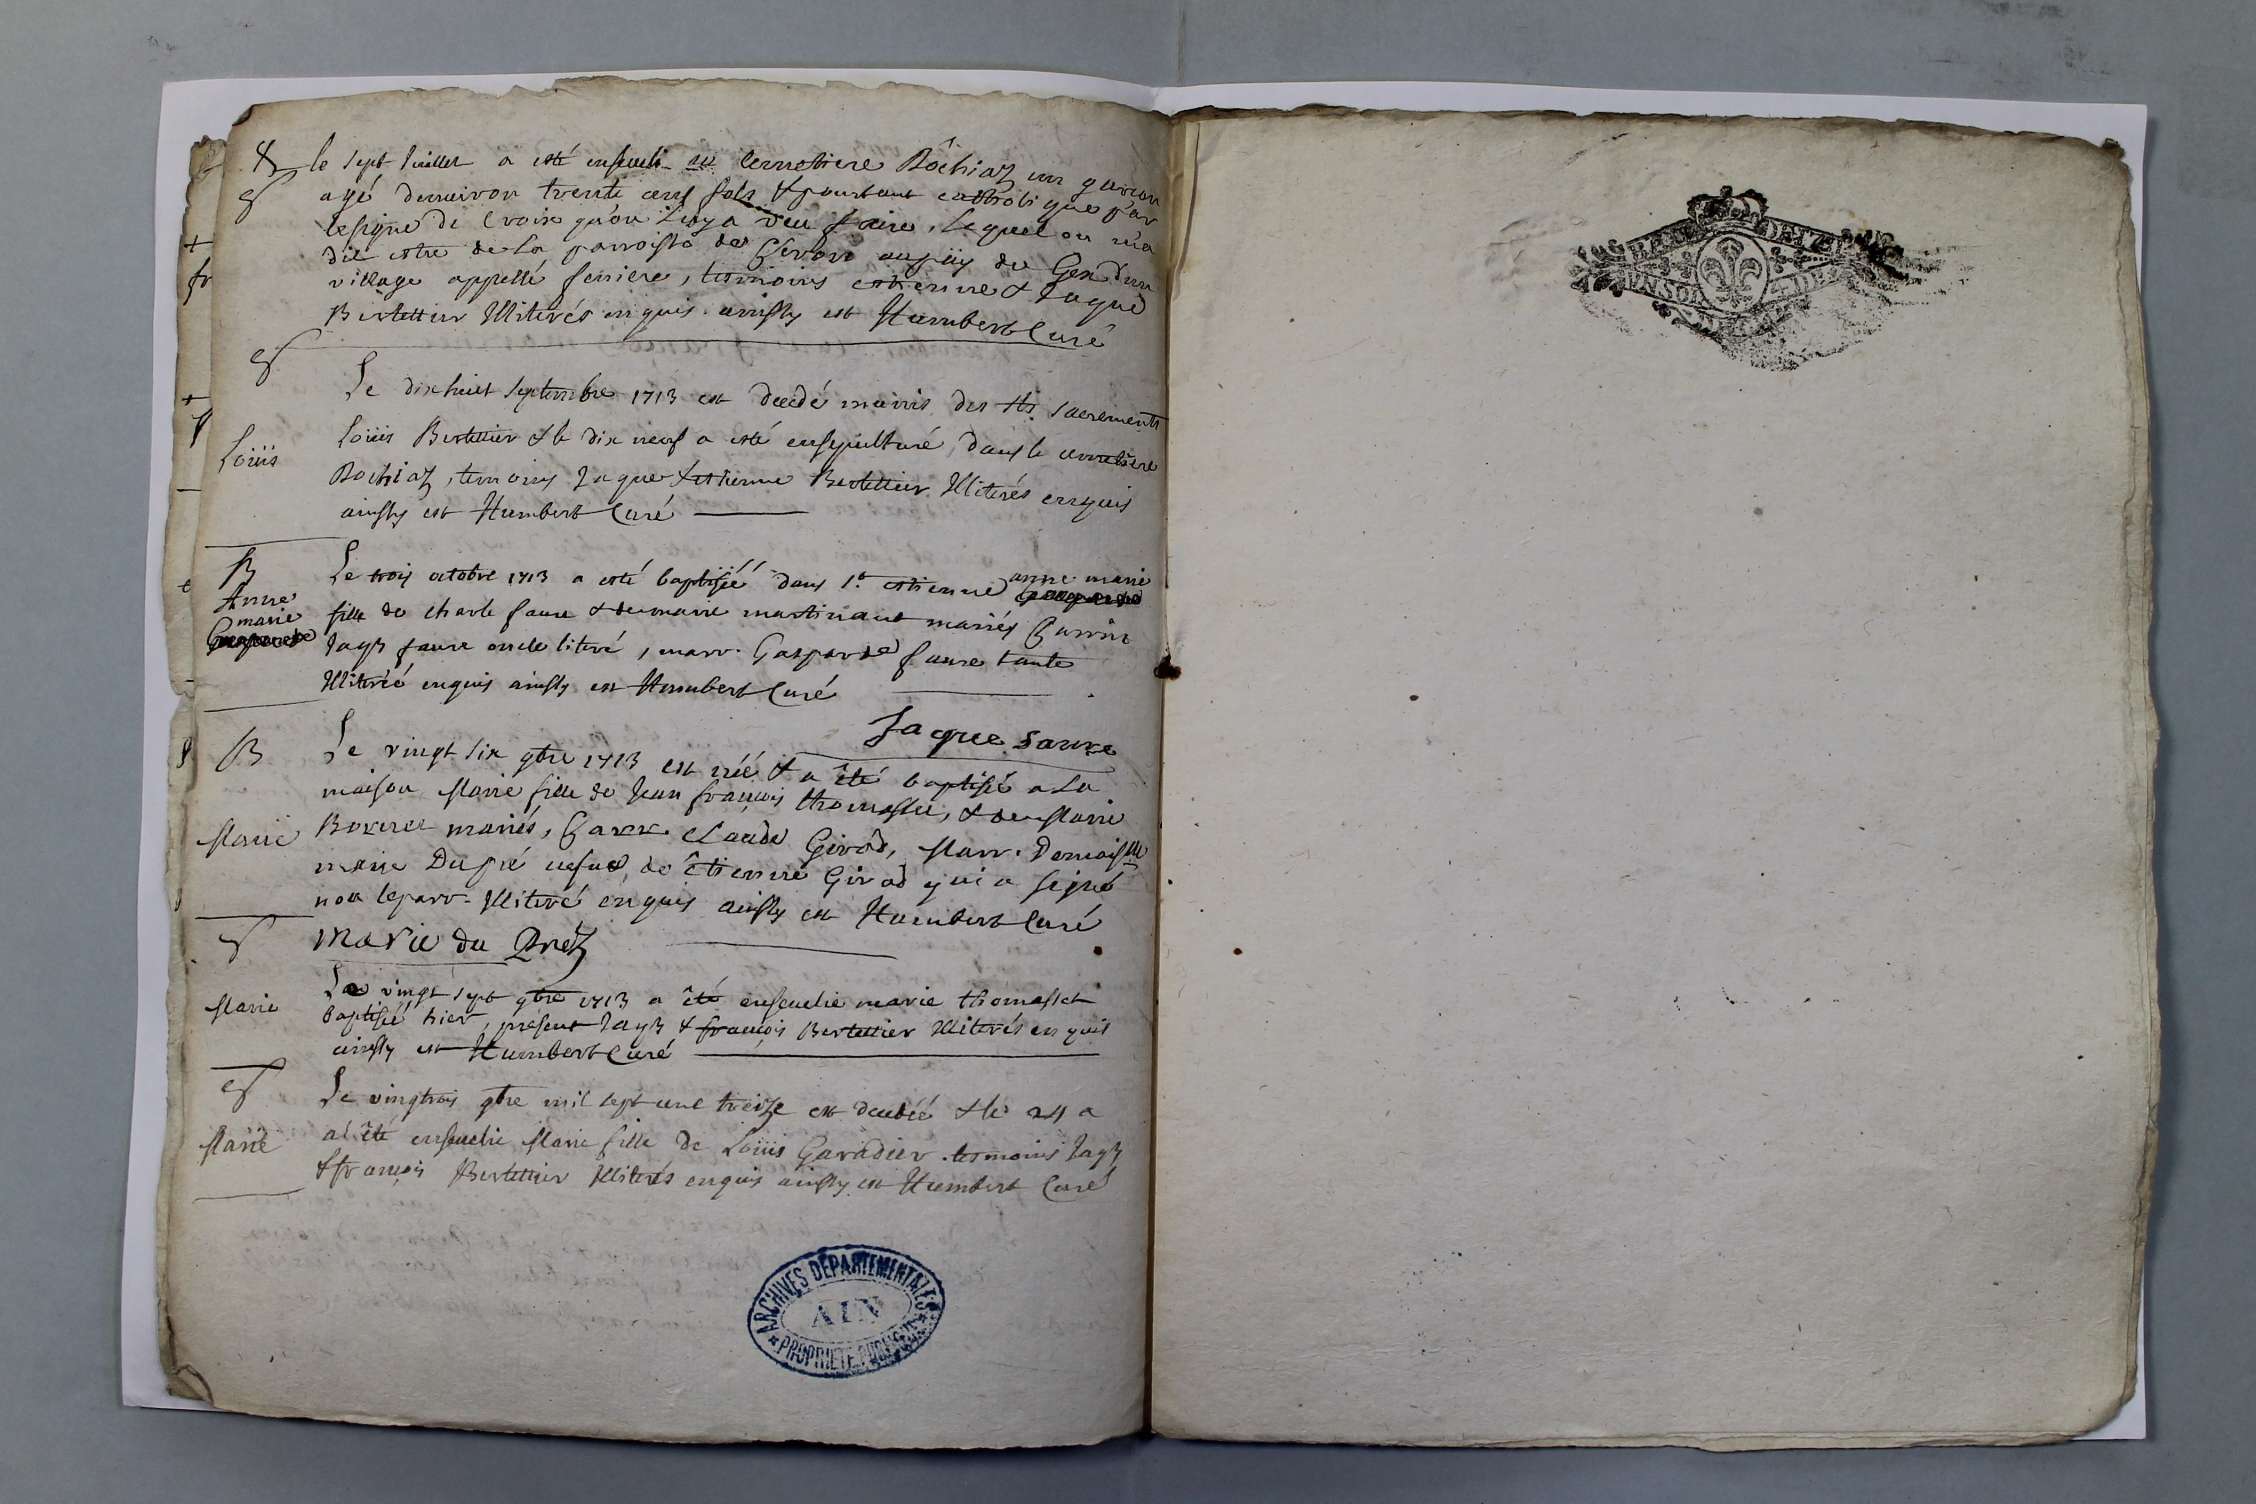 le sept Juillet a esté enseueli au Cemetiere Rôchiaz un garcon
agé denuiron trente cinq fols & pourtant catholique par
le signe de Croix qu'on luy a veu faire, lequel on m'a
dit estre de la parroisse de au païs de Gex d'un
village appellé feniere, tesmoins estienne & Jaque
Bertettier Illiterés enquis ainssy est Humbert Curé
Le dixhuict septembre 1713 est decedé munis des Sts. Sacrements
Loüis
Loüis Bertettier & le dix neuf a esté ensepulturé, dans le cemetiere
Rochiaz, temoins Jaque & estienne Bertettier Illiterés enquis
ainssy est Humbert Curé
B
Le trois octobre 1713 a esté baptiséé dans St. estienne anne marie
Anne
marie
fille de charle faure & de marie martinant mariés Parrin
Jaqz faure oncle literé, marr. Gasparde faure tante
Illiteréé enquis ainssy est Humbert Curé
Jaque Faure
B
Le vingt six 9bre 1713 est néé & a êté baptisé a la
maison Marie fille de Jean françois thomasset, & de Marie
Marie
mariés, Parr. Claude Girod, Marr. Demoislle
marie Dupré uefue de êtienne Girod qui a signé
non le parr. Illiteré enquis ainssy est Humbert Curé
Marie du Préz
Le vingt sept 9bre 1713 a êté enseuelie marie thomasset
Marie
baptiséé hier, present Jaqz & françois Bertettier Illiterés enquis
ainssy est Humbert Curé
Le vingtrois 9bre mil sept cent treize est decedéé & le 24 a
Marie
a êté enseuelie Marie fille de Loüis Garadier. tesmoins Jaqz
& françois Bertettier Illiterés enquis ainssy est Humbert Curé
ARCHIVES DÉPARTEMENTALES
AIN
PROPRIÉTÉ PUBLIQUE